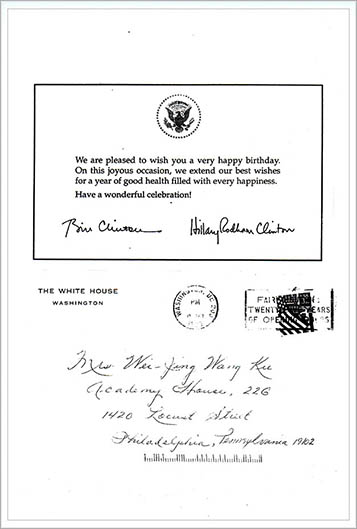 We are pleased to wish you a very happy birthday.
On this joyous occasion, we extend our best wishes
for a year of good health filled with every happiness.
Have a wonderful celebration!
Bill Clinton Hillary Rodham Clinton
THE WHITE HOUSE
WASHINGTON
WASHINGTON, DC
PM
YEARS
OF
Mrs Wei-Jing Wang Ku
Academy House, 22G
1420 Locust Street
Philadelphia, Pennsylvania 19102